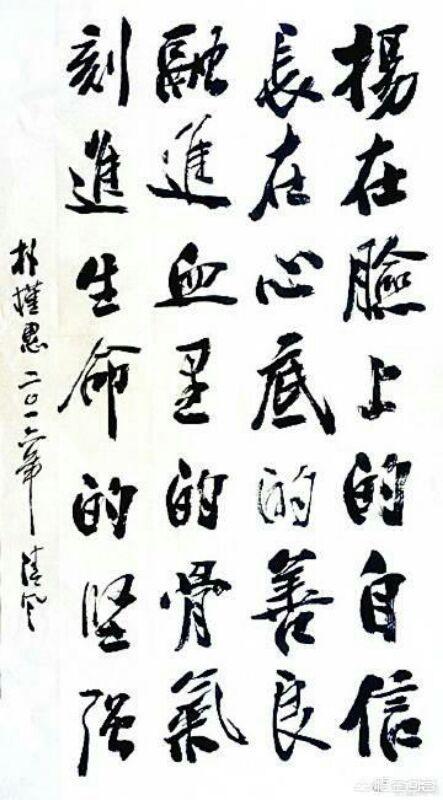 揚在臉上的自信
長在心底的善良
融進血里的骨氣
刻進生命的坚强
朴槿惠二〇一六年 清风